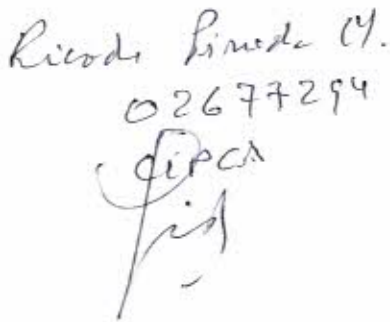 Ricardo Pineda M.
02677294
CIPCA